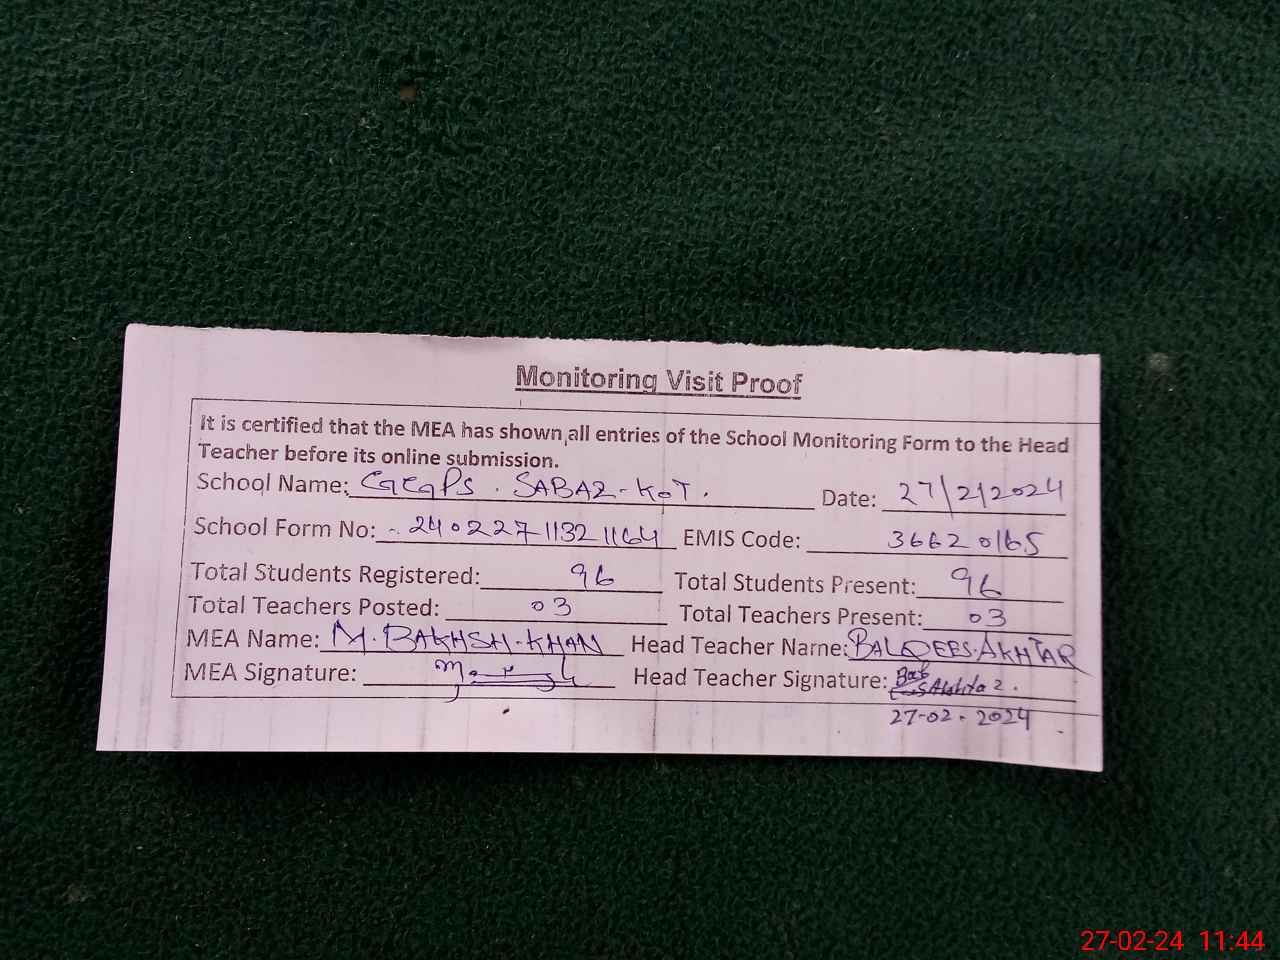 Monitoring Visit Proof
It is certified that the MEA has shown all entries of the School Monitoring Form to the Head
Teacher before its online submission.
School Name: GGPS. SABAZ-KOT. Date: 27/2/2024
School Form No: 24022711321164 EMIS Code: 36620165
Total Students Registered: 96 Total Students Present: 96
Total Teachers Posted: 03 Total Teachers Present: 03
MEA Name: M. BAKHSH-KHAN Head Teacher Name: BALQEES.AKHTAR
MEA Signature: Head Teacher Signature:
27-02-2024
27-02-24 11:44